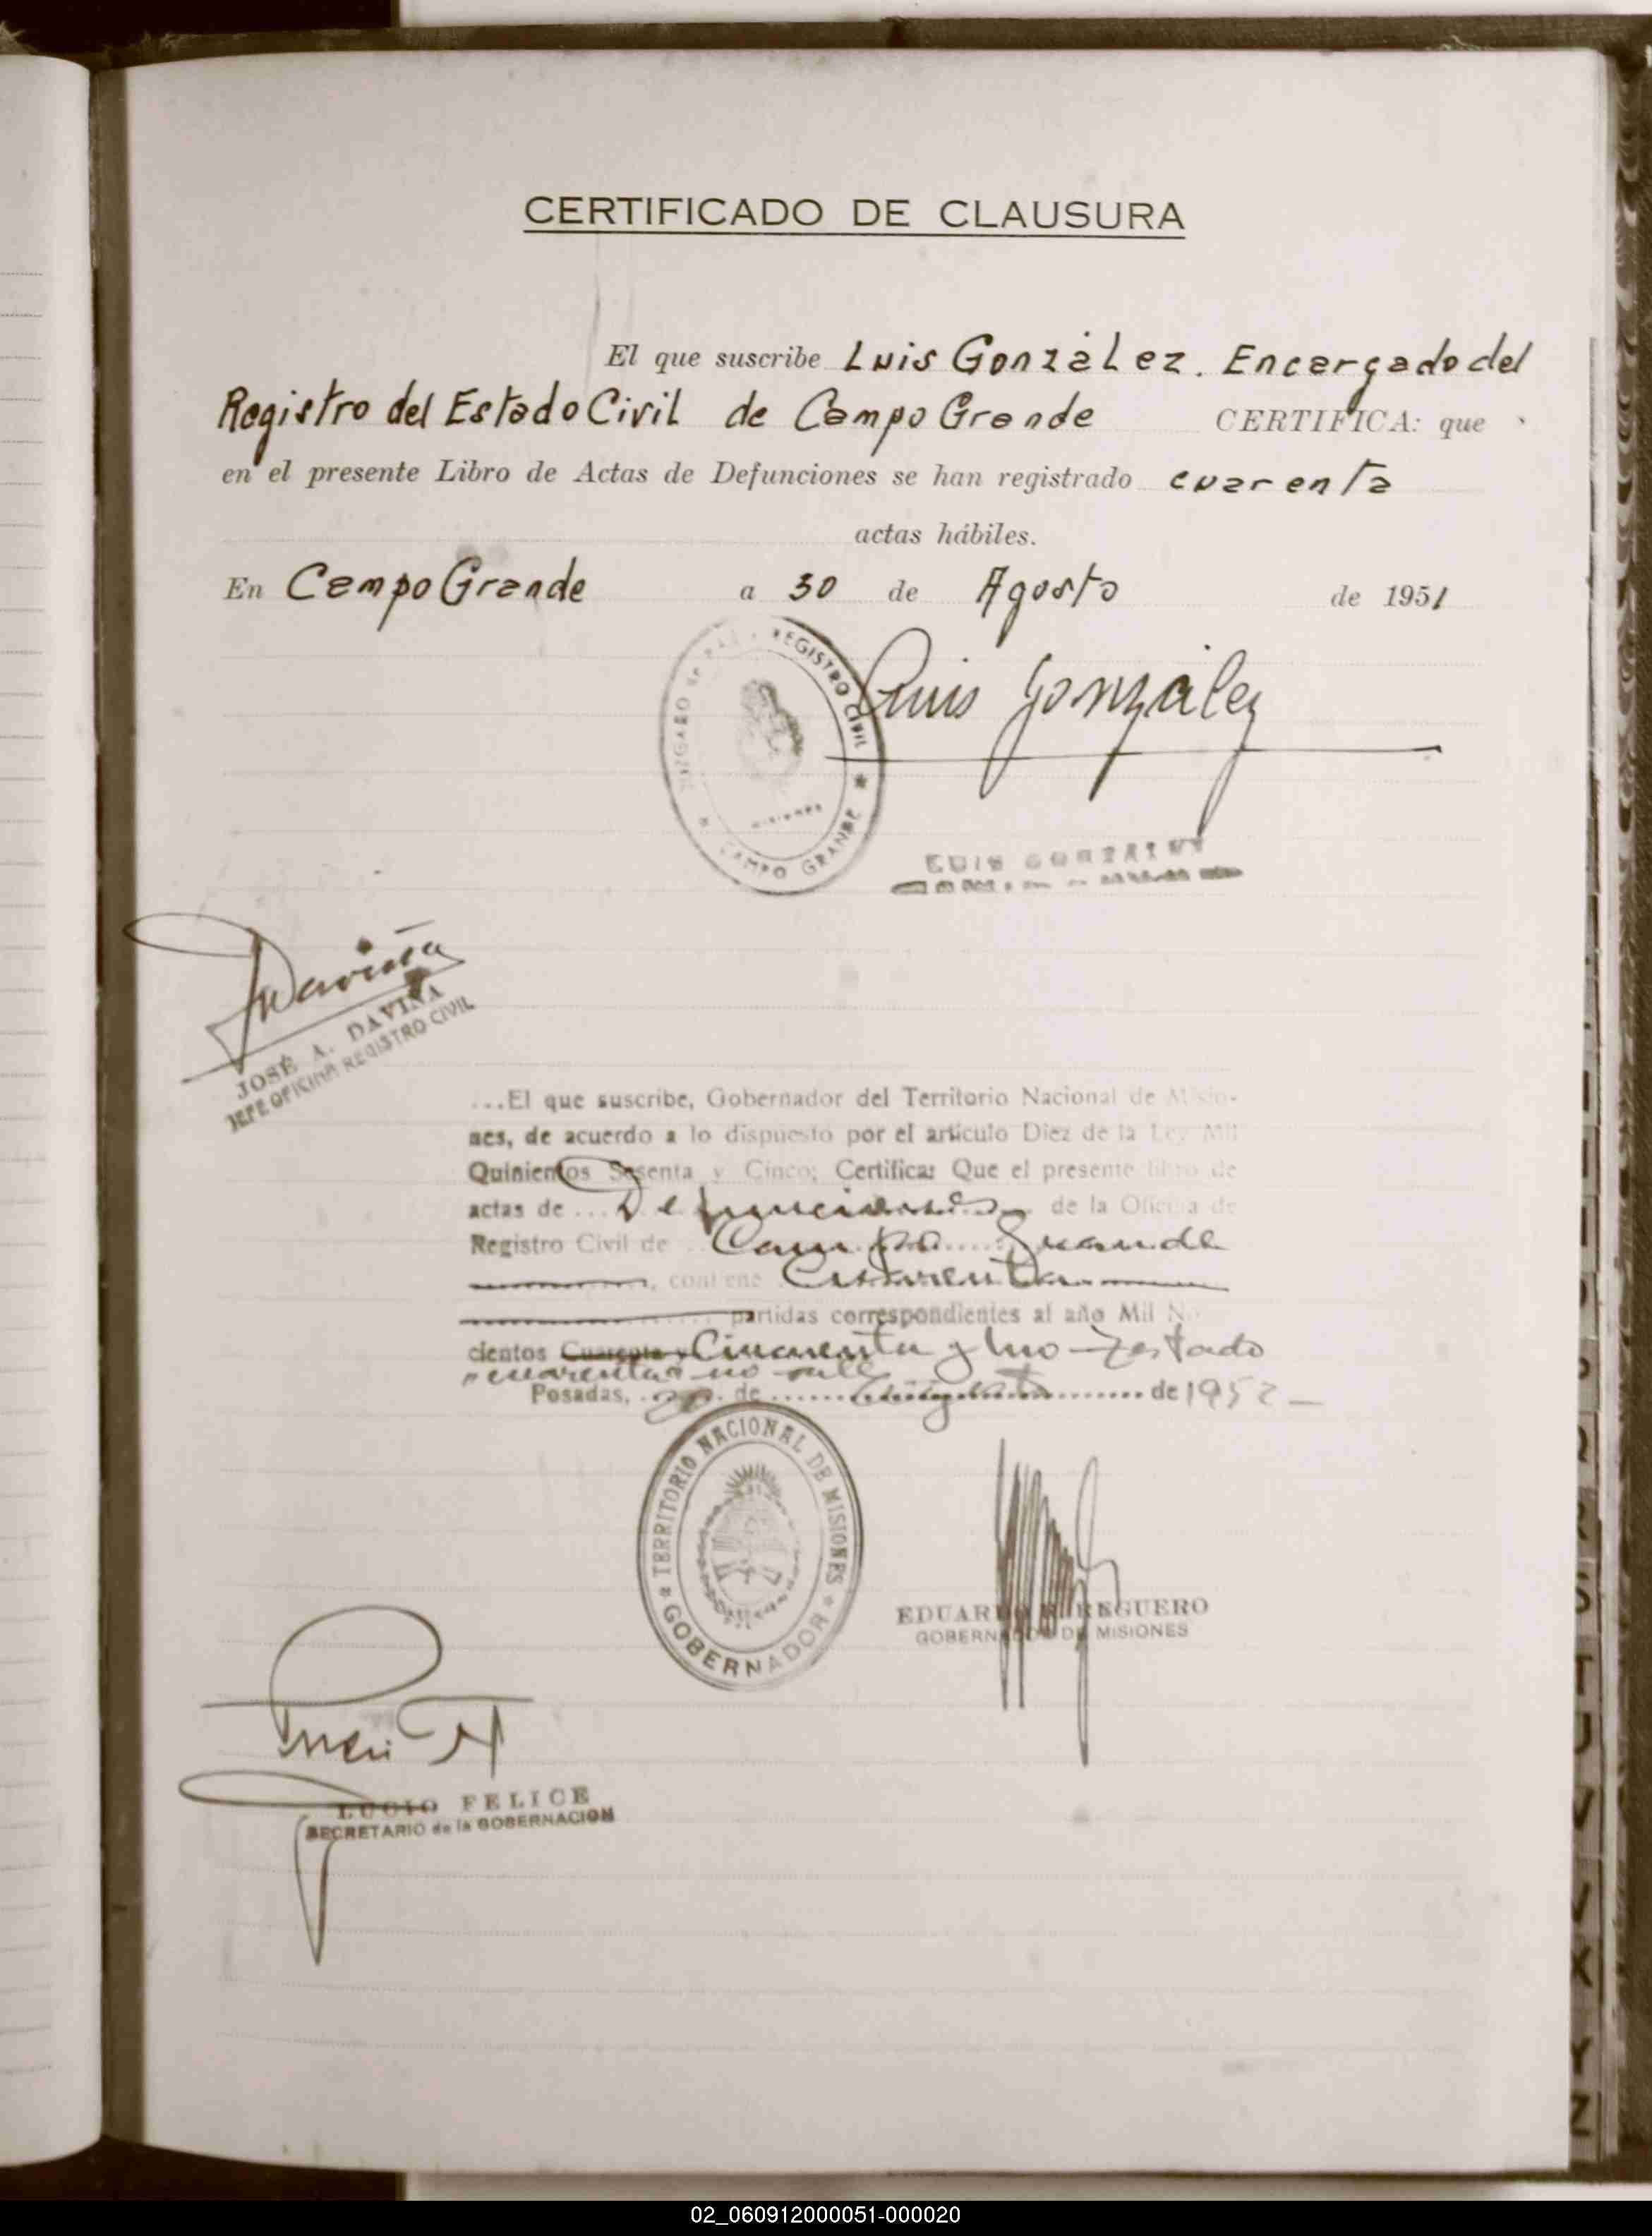 CERTIFICADO DE CLAUSURA
El que suscribe Luis González. Encargado del
Registro del Estado Civil de Campo Grande CERTIFICA: que
en el presente Libro de Actas de Defunciones se han registrado cuarenta
actas hábiles.
En Campo Grande a 30 de Agosto de 1951
JUZGADO de PAZ REGISTRO CIVIL
MISIONES
CAMPO GRANDE
Luis González
LUIS GONZALEZ
Daviña
JOSÉ A. DAVIÑA
JEFE OFICINA REGISTRO CIVIL
...El que suscribe, Gobernador del Territorio Nacional de Misio-
nes, de acuerdo a lo dispuesto por el artículo Diez de la Ley Mil
Quinientos Sesenta y Cinco; Certifica: Que el presente libro de
actas de ... Defunciones de la Oficina de
Registro Civil de Campo Grande
, contiene Cuarenta
partidas correspondientes al año Mil No
cientos Cuarenta y Cincuenta y Uno - Testado
"cuarenta" no vale
Posadas, de de 1952 -
TERRITORIO NACIONAL DE MISIONES
GOBERNADOR
EDUARDO REGUERO
GOBERNADOR DE MISIONES
LUCIO FELICE
SECRETARIO de la GOBERNACION
S
T
U
V
X
Y
Z
02_060912000051-000020